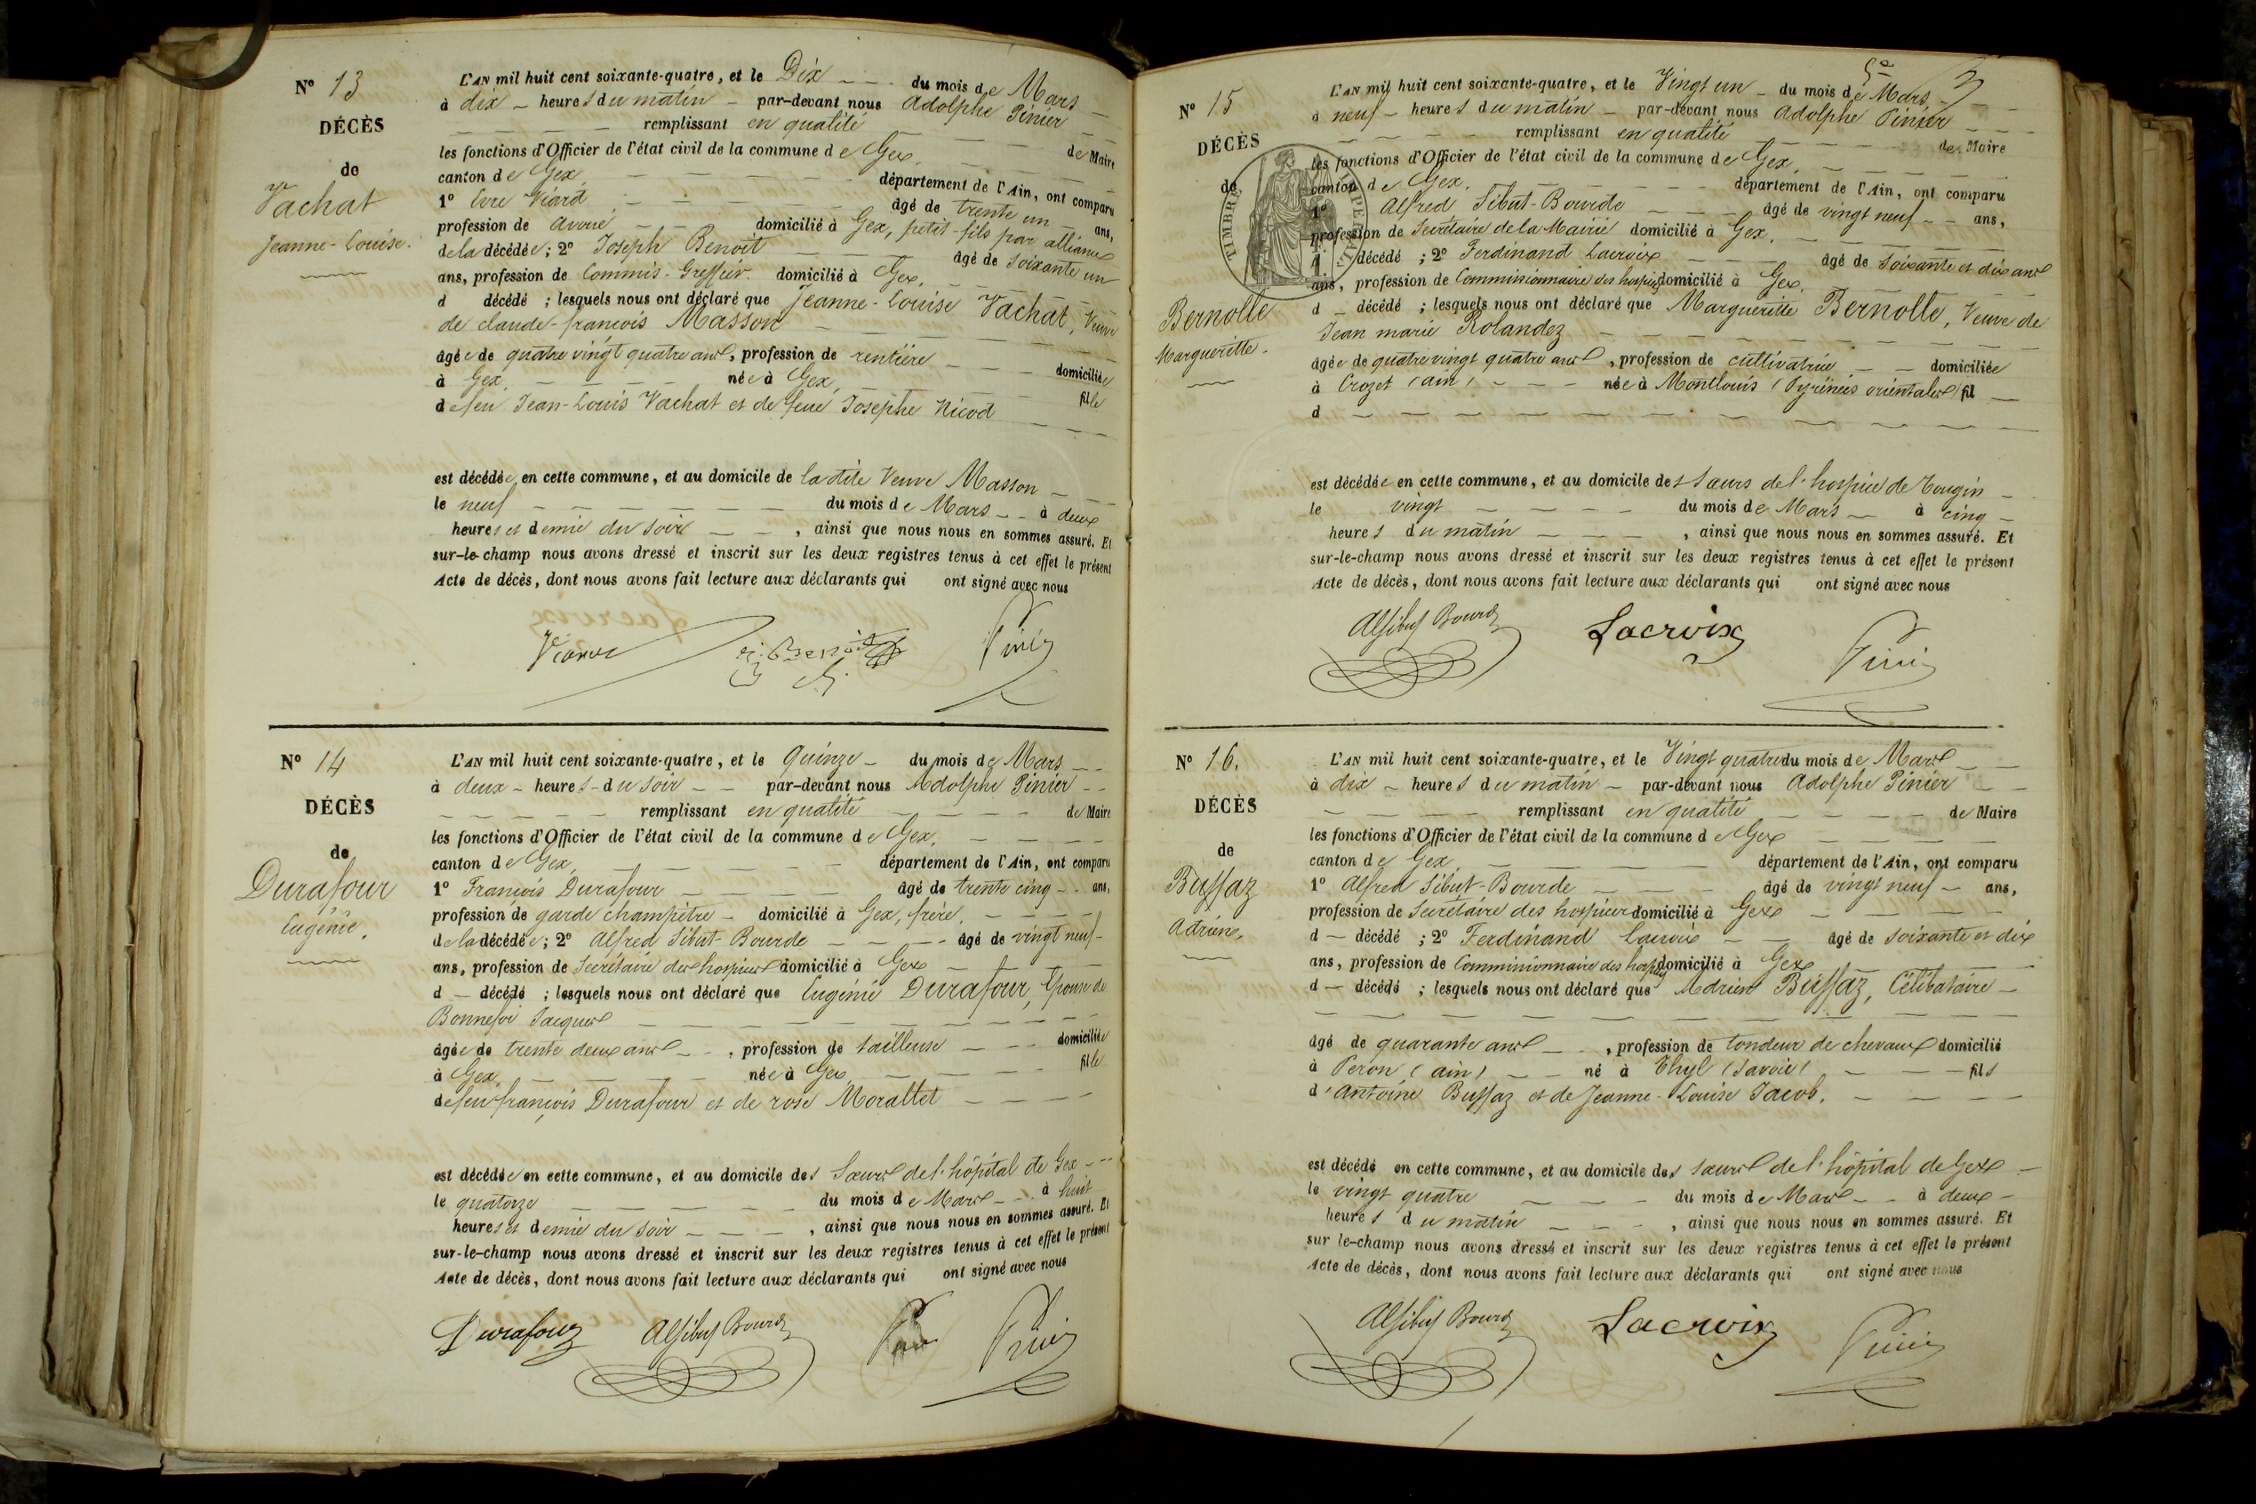 N° 13
DÉCÈS
de
Vachat
Jeanne-Louise.
L'AN mil huit cent soixante-quatre, et le Dix du mois de Mars
à dix heures du matin par-devant nous Adolphe Pinier
remplissant en qualité de Maire
les fonctions d'Officier de l'état civil de la commune de Gex,
canton de Gex département de l'Ain, ont comparu
1° Viard âgé de trente un ans,
profession de avoué domicilié à Gex, petit-fils par alliance
de la décédée; 2° Joseph Benoit âgé de soixante un
ans, profession de Commis-Greffier domicilié à Gex,
d décédé ; lesquels nous ont déclaré que Jeanne-Louise Vachat, Veuve
de claude-françois Masson
âgée de quatre vingt quatre ans, profession de rentière domiciliée
à Gex, née à Gex, fille
de feu Jean-Louis Vachat et de feue Josephe Nicod
est décédée en cette commune, et au domicile de la dite Veuve Masson
le neuf du mois de Mars à deux
heures et demie du soir, ainsi que nous nous en sommes assuré. Et
sur-le-champ nous avons dressé et inscrit sur les deux registres tenus à cet effet le présent
Acte de décès, dont nous avons fait lecture aux déclarants qui ont signé avec nous
Viard Benoit Pinier
N° 14
DÉCÈS
de
Durafour
Eugénie.
L'AN mil huit cent soixante-quatre, et le Quinze du mois de Mars
à deux heures du soir par-devant nous Adolphe Pinier
remplissant en qualité de Maire
les fonctions d'Officier de l'état civil de la commune de Gex,
canton de Gex, département de l'Ain, ont comparu
1° François Durafour âgé de trente cinq ans,
profession de garde champêtre domicilié à Gex, frère,
de la décédée; 2° Alfred Sibut-Bourde âgé de vingt neuf
ans, profession de Secrétaire des hospices domicilié à Gex
d décédé ; lesquels nous ont déclaré que Eugénie Durafour, Epouse de
Bonnefoi Jacques
âgée de trente deux ans, profession de tailleuse domiciliée
à Gex, née à Gex, fille
de feu françois Durafour et de rose Morattet
est décédée en cette commune, et au domicile des Sœurs de l'hôpital de Gex
le quatorze du mois de Mars à huit
heures et demie du soir, ainsi que nous nous en sommes assuré. Et
sur-le-champ nous avons dressé et inscrit sur les deux registres tenus à cet effet le présent
Acte de décès, dont nous avons fait lecture aux déclarants qui ont signé avec nous
Durafour Alf Sibut Bourde Pinier
N° 15
DÉCÈS
de
TIMBRE IMPERIAL
Bernolle
Marguerite.
L'AN mil huit cent soixante-quatre, et le Vingt un du mois de Mars,
à neuf heures du matin par-devant nous Adolphe Pinier
remplissant en qualité de Maire
les fonctions d'Officier de l'état civil de la commune de Gex,
canton de Gex, département de l'Ain, ont comparu
1° Alfred Sibut-Bourde âgé de vingt neuf ans,
profession de Secrétaire de la Mairie domicilié à Gex,
d décédé ; 2° Ferdinand Lacroix âgé de soixante et dix ans
ans, profession de Commissionnaire des hospices domicilié à Gex,
d décédé ; lesquels nous ont déclaré que Marguerite Bernolle, Veuve de
Jean marie Rolandez
âgée de quatre vingt quatre ans, profession de cultivatrice domiciliée
à Crozet (ain) née à Montlouis (Pyrénées orientales) fil
d
est décédée en cette commune, et au domicile des sœurs de l'hospice de Tougin
le vingt du mois de Mars à cinq
heures du matin, ainsi que nous nous en sommes assuré. Et
sur-le-champ nous avons dressé et inscrit sur les deux registres tenus à cet effet le présent
Acte de décès, dont nous avons fait lecture aux déclarants qui ont signé avec nous
Alf Sibut Bourde Lacroix Pinier
N° 16.
DÉCÈS
de
Buffaz
Adrien.
L'AN mil huit cent soixante-quatre, et le Vingt quatre du mois de Mars
à dix heures du matin par-devant nous Adolphe Pinier
remplissant en qualité de Maire
les fonctions d'Officier de l'état civil de la commune de Gex
canton de Gex département de l'Ain, ont comparu
1° Alfred Sibut-Bourde âgé de vingt neuf ans,
profession de Secrétaire des hospices domicilié à Gex
d décédé ; 2° Ferdinand Lacroix âgé de soixante et dix
ans, profession de Commissionnaire des hospices domicilié à Gex
d décédé ; lesquels nous ont déclaré que Adrien Buffaz, Célibataire
âgé de quarante ans, profession de tondeur de chevaux domicilié
à Peron (ain) né à Thyl (Savoie) fils
d'Antoine Buffaz et de Jeanne-Louise Jacob.
est décédé en cette commune, et au domicile des sœurs de l'hôpital de Gex
le vingt quatre du mois de Mars à deux
heures du matin, ainsi que nous nous en sommes assuré. Et
sur le-champ nous avons dressé et inscrit sur les deux registres tenus à cet effet le présent
Acte de décès, dont nous avons fait lecture aux déclarants qui ont signé avec nous
Alf Sibut Bourde Lacroix Pinier